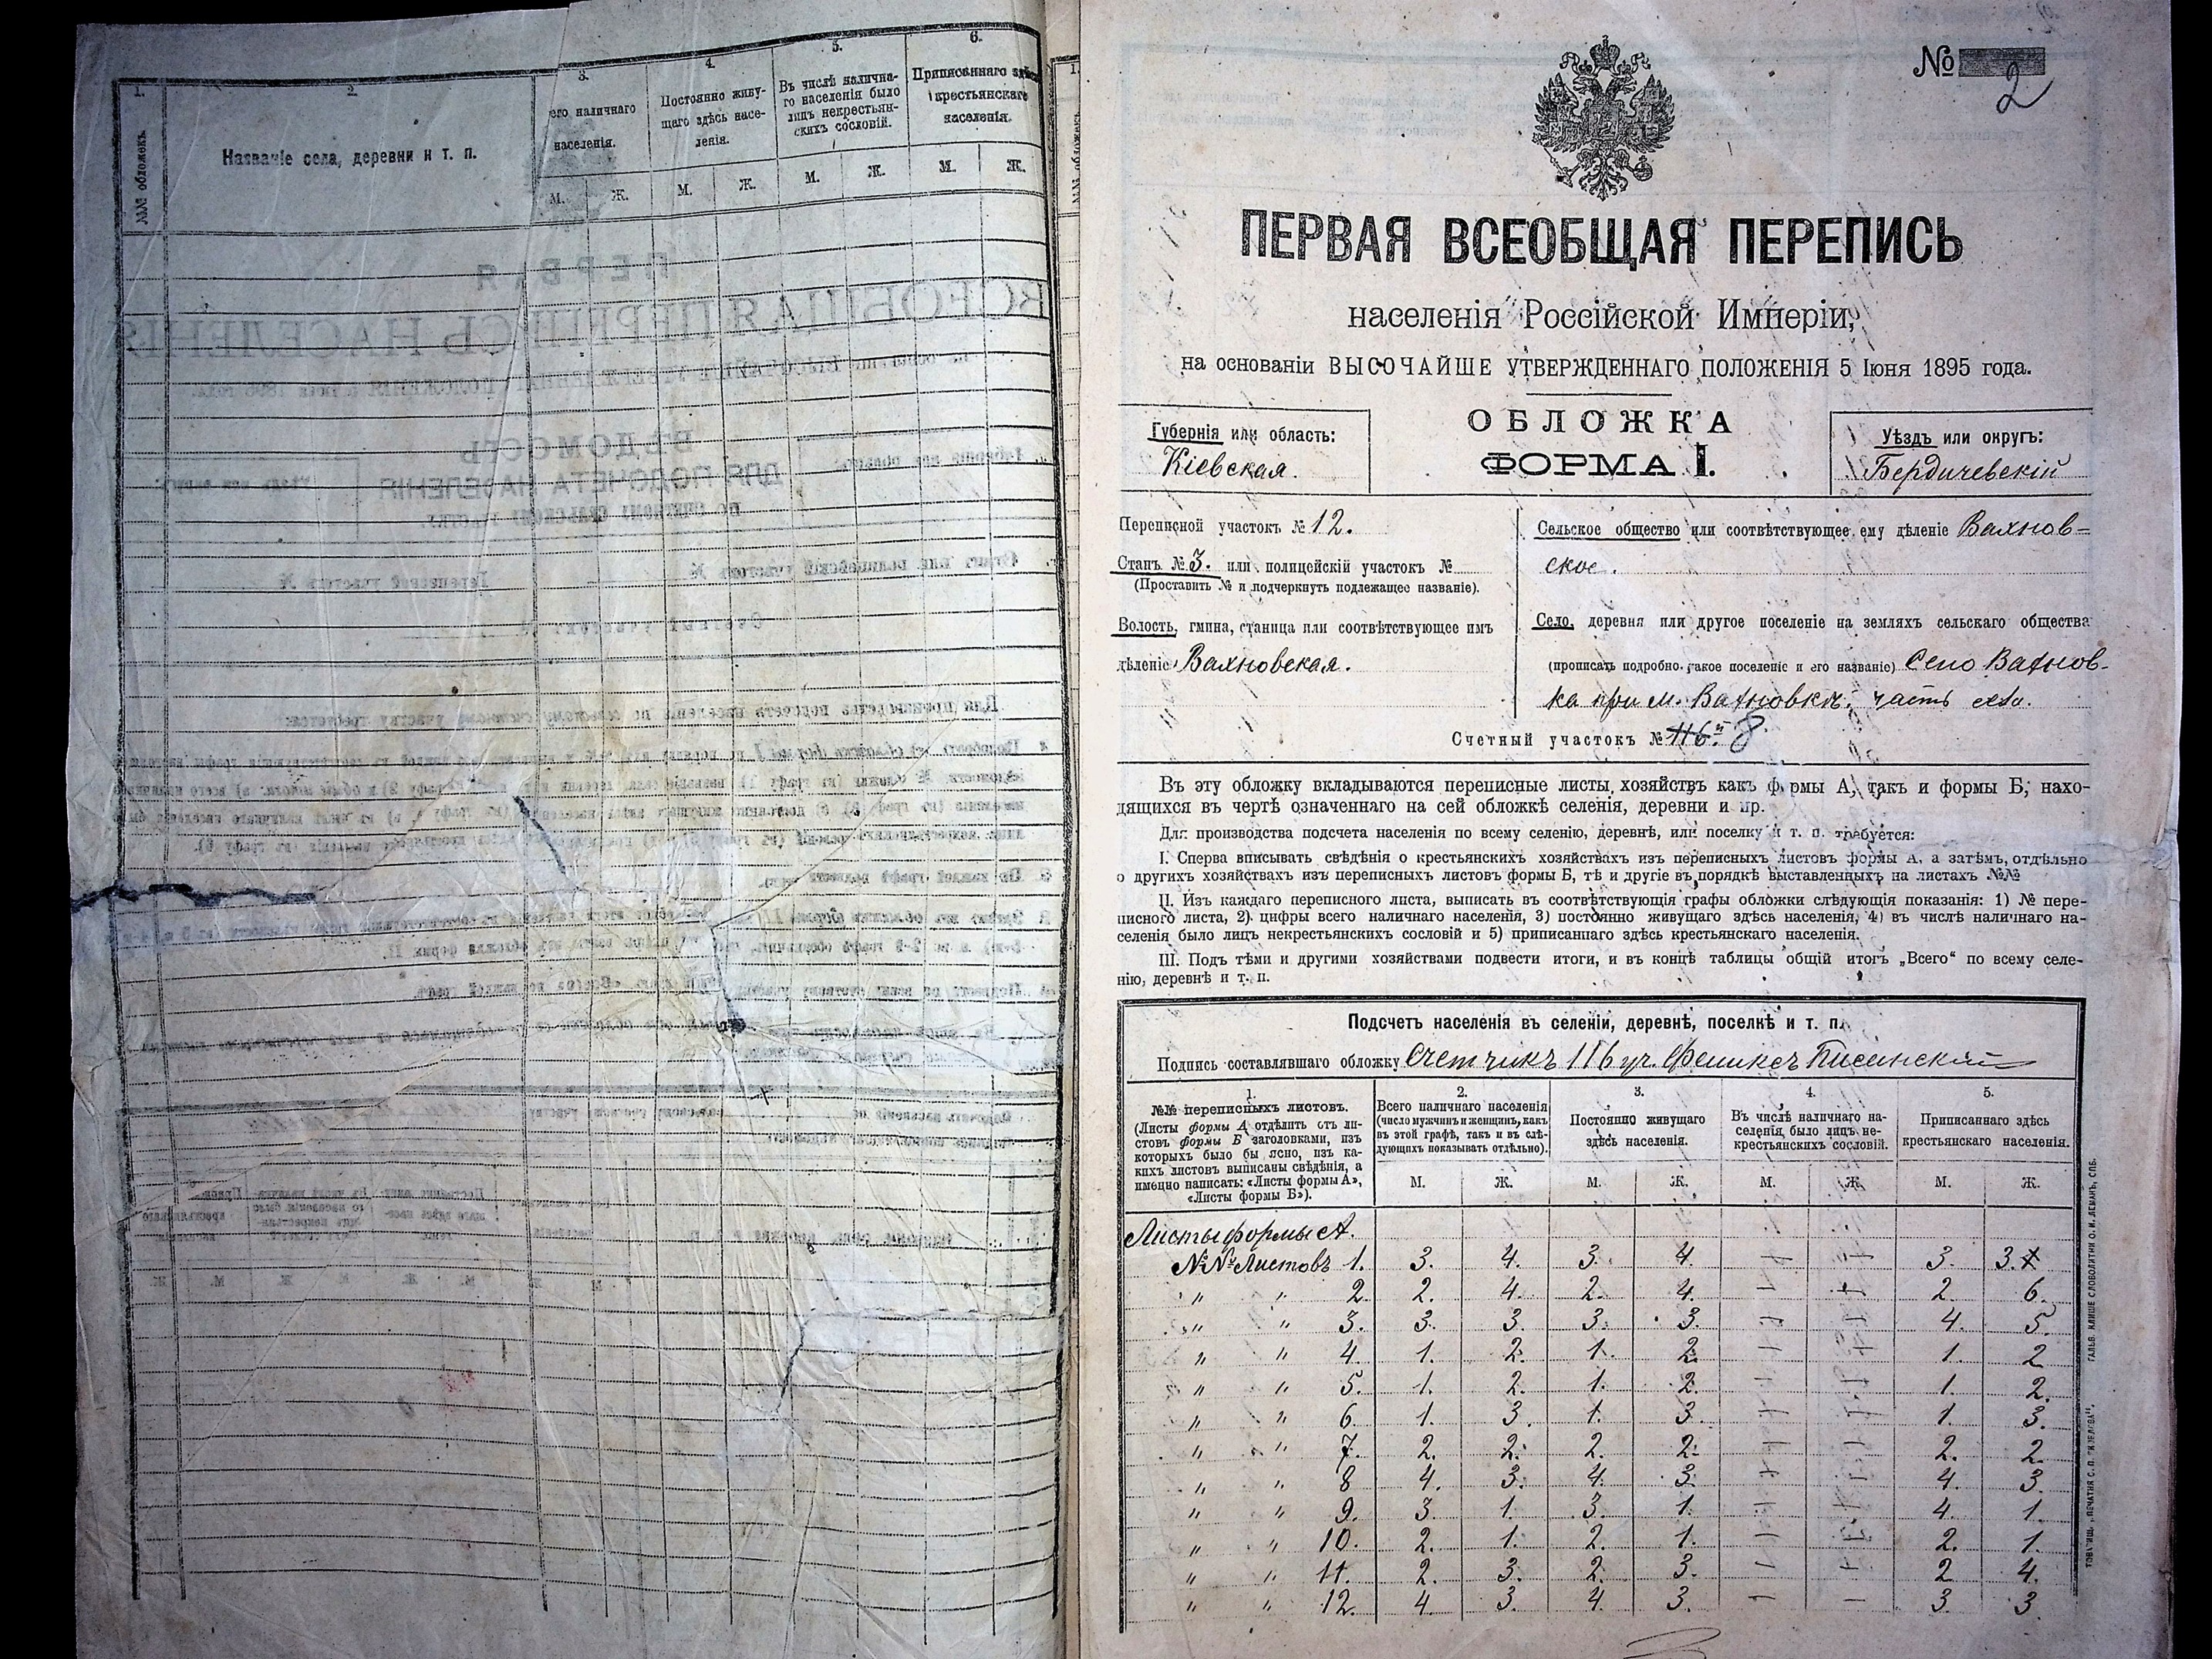 1.
2.
3.
4.
5.
6.
№№ обложекъ.
Названіе села, деревни и т. п.
его наличнаго
населенія.
Постоянно живу-
щаго здѣсь насе-
ленія.
Въ числѣ налична-
го населенія было
лицъ некрестьян-
скихъ сословій.
Приписаннаго здѣсь
крестьянскаго
населенія.
М. Ж. М. Ж. М. Ж. М. Ж.
№ 2
ПЕРВАЯ ВСЕОБЩАЯ ПЕРЕПИСЬ
населенія Россійской Имперіи,
на основаніи ВЫСОЧАЙШЕ УТВЕРЖДЕННАГО ПОЛОЖЕНІЯ 5 Іюня 1895 года.
Губернія или область:
Кіевская.
ОБЛОЖКА
ФОРМА I.
Уѣздъ или округъ:
Бердичевскій
Переписной участокъ № 12.
Станъ № 3. или полицейскій участокъ №
(Проставить № и подчеркнуть подлежащее названіе).
Волость, гмина, станица или соотвѣтствующее имъ
дѣленіе Вахновская.
Сельское общество или соотвѣтствующее ему дѣленіе Вахнов-
ское.
Село, деревня или другое поселеніе на земляхъ сельскаго общества
(прописать подробно, какое поселеніе и его названіе) Село Вахнов-
ка при м. Вахновкѣ, часть села.
Счетный участокъ № 116й 8
Въ эту обложку вкладываются переписные листы хозяйствъ какъ формы А, такъ и формы Б, нахо-
дящихся въ чертѣ означеннаго на сей обложкѣ селенія, деревни и пр.
Для производства подсчета населенія по всему селенію, деревнѣ, или поселку и т. п. требуется:
I. Сперва вписывать свѣдѣнія о крестьянскихъ хозяйствахъ изъ переписныхъ листовъ формы А, а затѣмъ, отдѣльно
о другихъ хозяйствахъ изъ переписныхъ листовъ формы Б, тѣ и другіе въ порядкѣ выставленныхъ на листахъ №№
II. Изъ каждаго переписного листа, выписать въ соотвѣтствующія графы обложки слѣдующія показанія: 1) № пере-
писного листа, 2) цифры всего наличнаго населенія, 3) постоянно живущаго здѣсь населенія, 4) въ числѣ наличнаго на-
селенія было лицъ некрестьянскихъ сословій и 5) приписаннаго здѣсь крестьянскаго населенія.
III. Подъ тѣми и другими хозяйствами подвести итоги, и въ концѣ таблицы общій итогъ „Всего“ по всему селе-
нію, деревнѣ и т. п.
Подсчетъ населенія въ селеніи, деревнѣ, поселкѣ и т. п.
Подпись составлявшаго обложку Счетчикъ 116 уч. Феликсъ Писанскій
1.
№№ переписныхъ листовъ.
(Листы формы А отдѣлить отъ ли-
стовъ формы Б заголовками, изъ
которыхъ было бы ясно, изъ ка-
кихъ листовъ выписаны свѣдѣнія, а
именно написать: «Листы формы А»,
«Листы формы Б»).
2.
Всего наличнаго населенія
(число мужчинъ и женщинъ, какъ
въ этой графѣ, такъ и въ слѣ-
дующихъ показывать отдѣльно).
3.
Постоянно живущаго
здѣсь населенія.
4.
Въ числѣ наличнаго на-
селенія было лицъ не-
крестьянскихъ сословій.
5.
Приписаннаго здѣсь
крестьянскаго населенія.
М. Ж. М. Ж. М. Ж. М. Ж.
Листы формы А.
№№ Листовъ 1. 3. 4. 3. 4. 3. 3.
" " 2. 2. 4. 2. 4. 2. 6.
" " 3. 3. 3. 3. 3. 4. 5.
" " 4. 1. 2. 1. 2. 1. 2
" " 5. 1. 2. 1. 2. 1. 2.
" " 6. 1. 3. 1. 3. 1. 3.
" " 7. 2. 2. 2. 2. 2. 2.
" " 8 4. 3. 4. 3. 4. 3.
" " 9. 3. 1. 3. 1. 4. 1.
" " 10. 2. 1. 2. 1. 2. 1.
" " 11. 2. 3. 2. 3. 2 4.
" " 12. 4. 3. 4. 3. 3. 3.